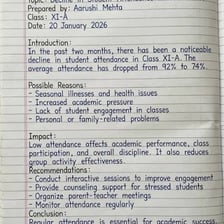 Topic: Decline in Student Attendance
Prepared by: Aarushi Mehta
Class: XI-A
Date: 20 January 2026
Introduction:
In the past two months, there has been a noticeable
decline in student attendance in Class XI-A. The
average attendance has dropped from 92% to 74%.
Possible Reasons:
- Seasonal illnesses and health issues
- Increased academic pressure
- Lack of student engagement in classes
- Personal or family-related problems
Impact:
Low attendance affects academic performance, class
participation, and overall discipline. It also reduces
group activity effectiveness.
Recommendations:
- Conduct interactive sessions to improve engagement
- Provide counseling support for stressed students
- Organize parent-teacher meetings
- Monitor attendance regularly
Conclusion:
Regular attendance is essential for academic success.